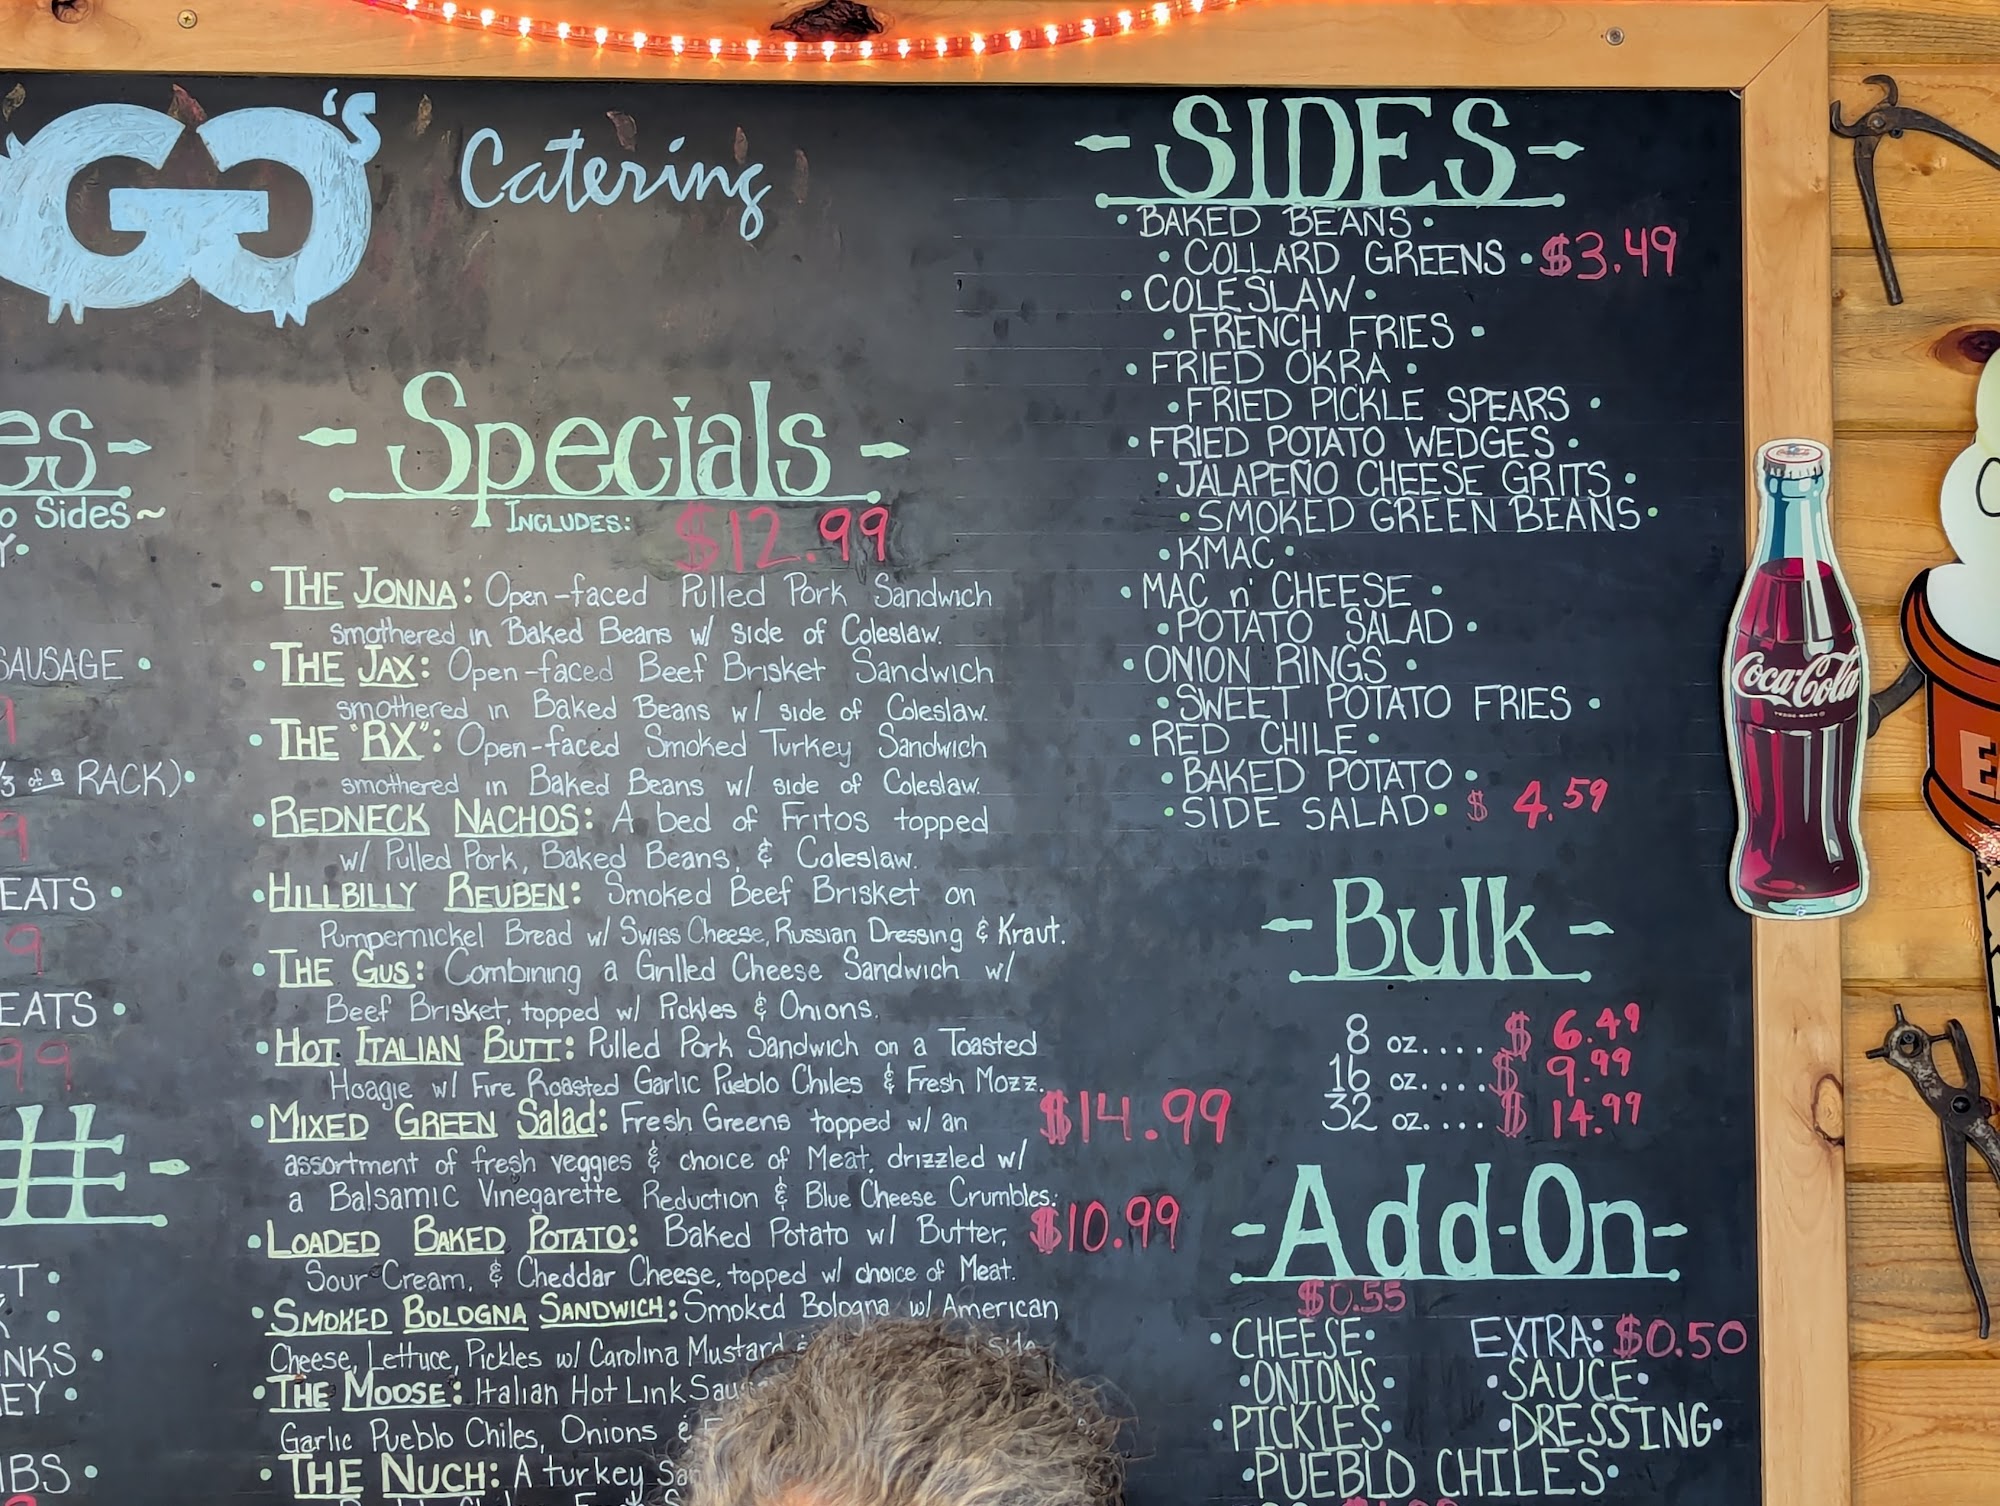 GG's Catering
es
o Sides~
Y.
SAUSAGE
9
⅓ of a RACK)
9
EATS
9
EATS
99
#
NKS
EY
IBS
- Specials -
INCLUDES: $12.99
• THE JONNA: Open-faced Pulled Pork Sandwich
smothered in Baked Beans w/ side of Coleslaw.
• THE JAX: Open-faced Beef Brisket Sandwich
smothered in Baked Beans w/ side of Coleslaw.
• THE "RX": Open-faced Smoked Turkey Sandwich
smothered in Baked Beans w/ side of Coleslaw.
• REDNECK NACHOS: A bed of Fritos topped
w/ Pulled Pork, Baked Beans, & Coleslaw.
• HILLBILLY REUBEN: Smoked Beef Brisket on
Pumpernickel Bread w/ Swiss Cheese, Russian Dressing & Kraut.
• THE GUS: Combining a Grilled Cheese Sandwich w/
Beef Brisket, topped w/ Pickles & Onions.
• HOT ITALIAN BUTT: Pulled Pork Sandwich on a Toasted
Hoagie w/ Fire Roasted Garlic Pueblo Chiles & Fresh Mozz.
• MIXED GREEN Salad: Fresh Greens topped w/ an $14.99
assortment of fresh veggies & choice of Meat, drizzled w/
a Balsamic Vinegarette Reduction & Blue Cheese Crumbles.
• LOADED BAKED POTATO: Baked Potato w/ Butter, $10.99
Sour Cream, & Cheddar Cheese, topped w/ choice of Meat.
• SMOKED BOLOGNA SANDWICH: Smoked Bologna w/ American
Cheese, Lettuce, Pickles w/ Carolina Mustard & Side
• THE MOOSE: Italian Hot Link Sau
Garlic Pueblo Chiles, Onions &
• THE NUCH: A turkey Sa
- SIDES -
• BAKED BEANS •
• COLLARD GREENS • $3.49
• COLESLAW •
• FRENCH FRIES •
• FRIED OKRA •
• FRIED PICKLE SPEARS •
• FRIED POTATO WEDGES •
• JALAPEÑO CHEESE GRITS •
• SMOKED GREEN BEANS •
• KMAC •
• MAC n' CHEESE •
• POTATO SALAD •
• ONION RINGS •
• SWEET POTATO FRIES •
• RED CHILE •
• BAKED POTATO •
• SIDE SALAD • $4.59
- Bulk -
8 oz.... $6.49
16 oz.... $9.99
32 oz.... $14.99
- Add-On -
$0.55
• CHEESE •
• ONIONS •
• PICKLES •
EXTRA: $0.50
• SAUCE •
• DRESSING •
• PUEBLO CHILES •
Coca-Cola
TRADE-MARK ®
E